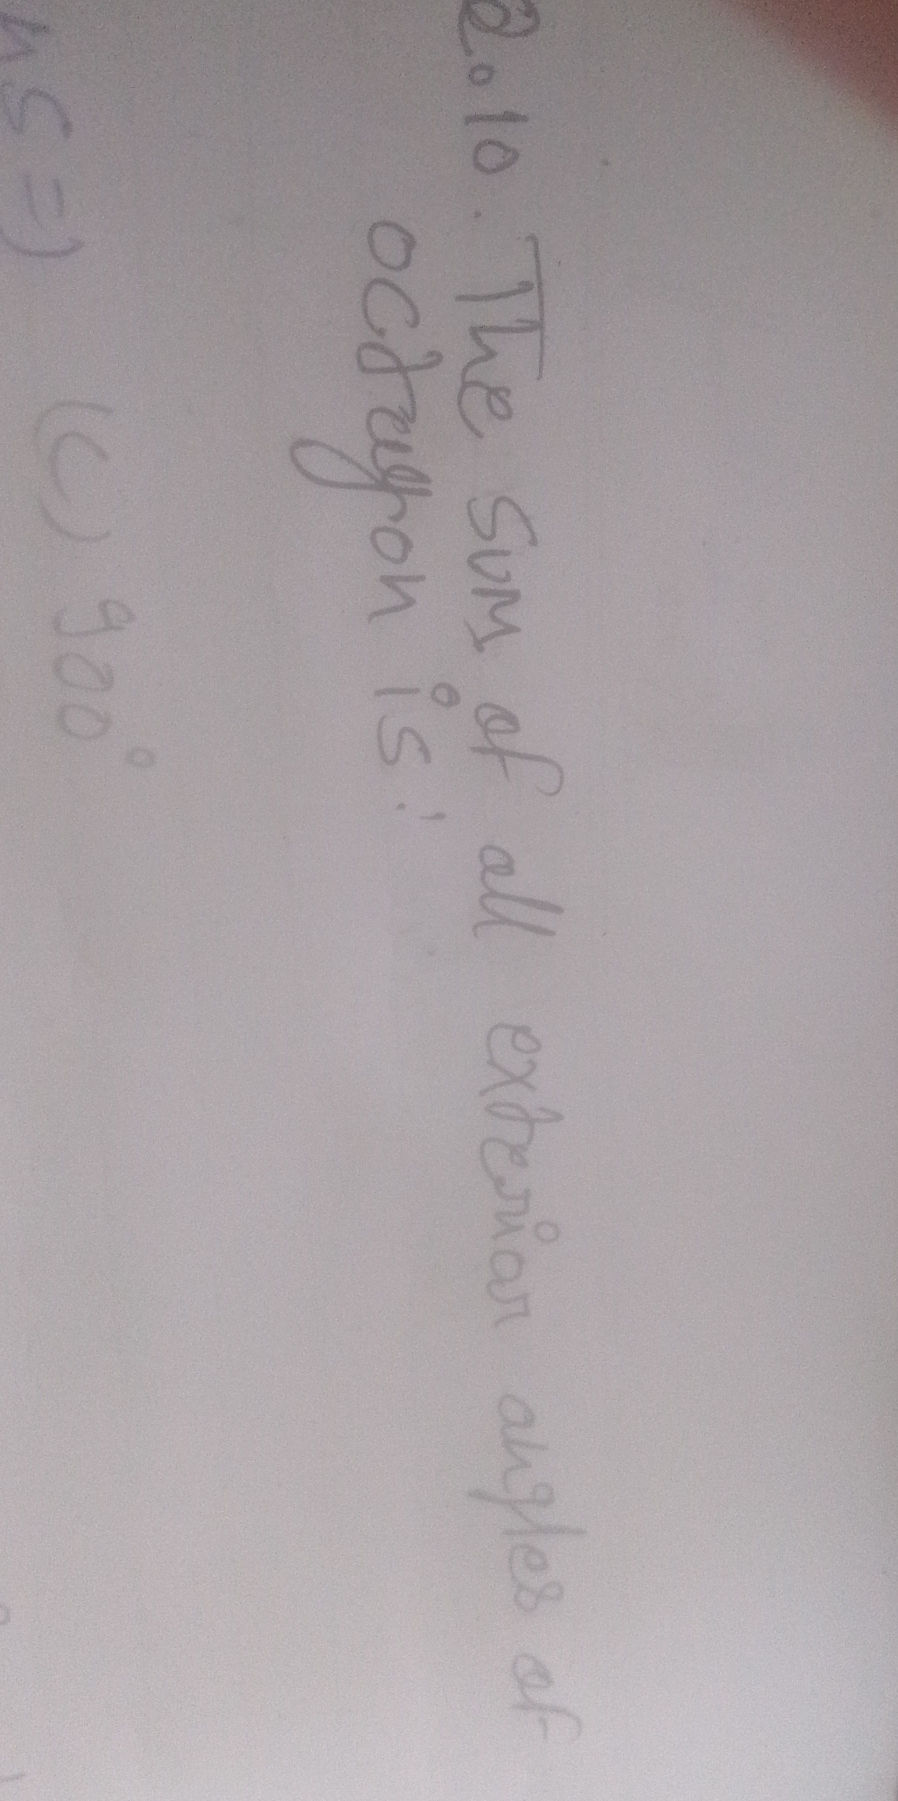 Q.10. The sum of all exterior angles of
octagon is:
ns => (C) 900°